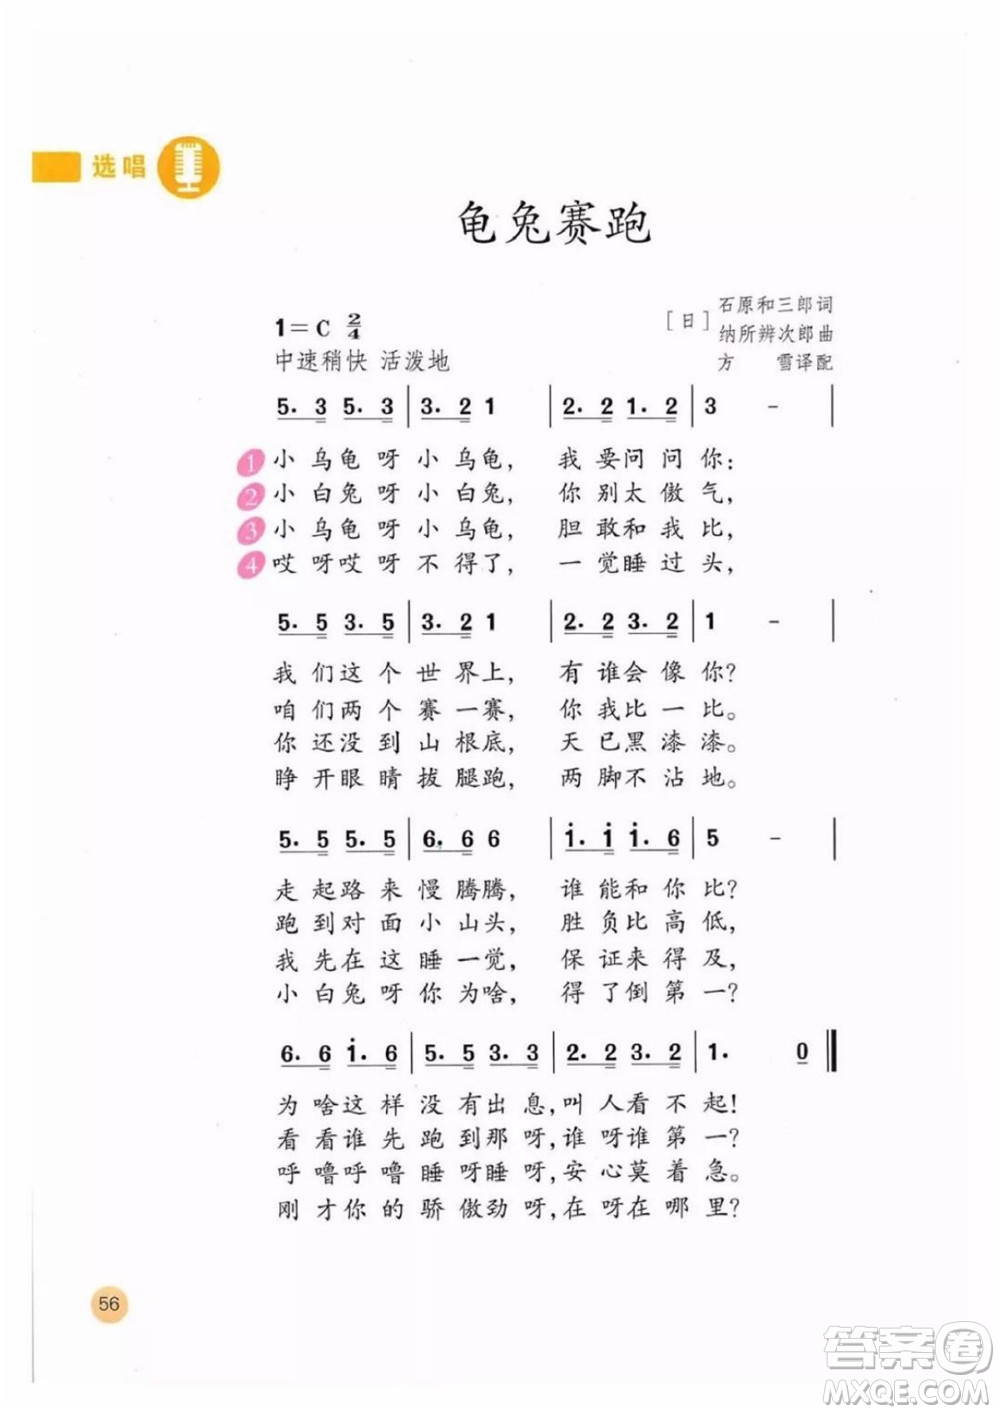 选唱
龟兔赛跑
1=C 2/4
[日]
石原和三郎词
纳所辨次郎曲
方 雪译配
中速稍快 活泼地
5. 3 5. 3 | 3. 2 1 | 2. 2 1. 2 | 3 - |
1 小乌龟呀小乌龟， 我要问问你：
2 小白兔呀小白兔， 你别太傲气，
3 小乌龟呀小乌龟， 胆敢和我比，
4 哎呀哎呀不得了， 一觉睡过头，
5. 5 3. 5 | 3. 2 1 | 2. 2 3. 2 | 1 - |
我们这个世界上， 有谁会像你？
咱们两个赛一赛， 你我比一比。
你还没到山根底， 天已黑漆漆。
睁开眼睛拔腿跑， 两脚不沾地。
5. 5 5. 5 | 6. 6 6 | i. i i. 6 | 5 - |
走起路来慢腾腾， 谁能和你比？
跑到对面小山头， 胜负比高低，
我先在这睡一觉， 保证来得及，
小白兔呀你为啥， 得了倒第一？
6. 6 i. 6 | 5. 5 3. 3 | 2. 2 3. 2 | 1. 0 ‖
为啥这样没有出息，叫人看不起！
看看谁先跑到那呀，谁呀谁第一？
呼噜呼噜睡呀睡呀，安心莫着急。
刚才你的骄傲劲呀，在呀在哪里？
56
答案圈
MXQE.COM